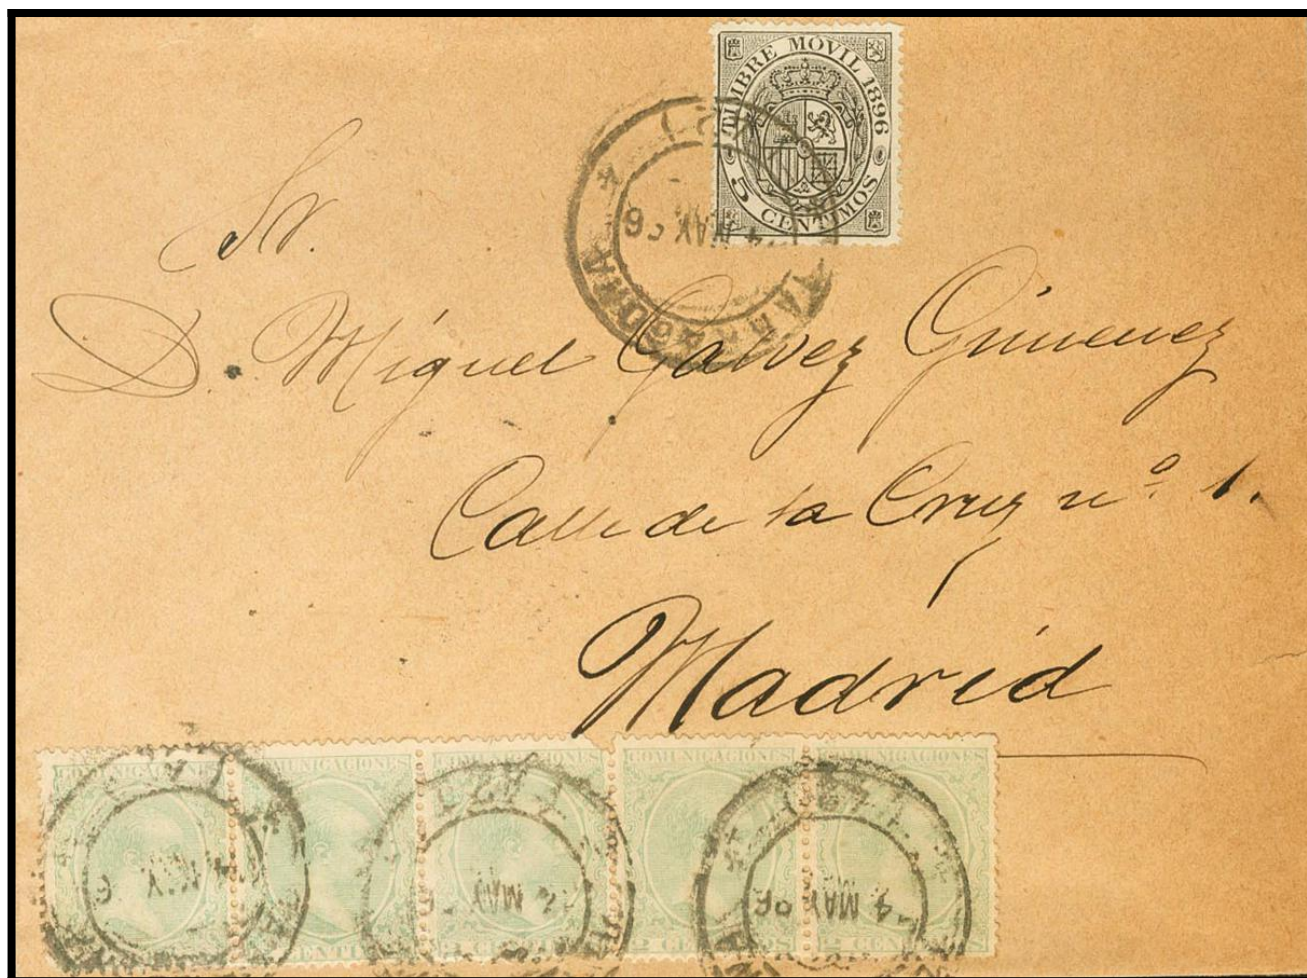 TIMBRE MOVIL 1896
5 CENTIMOS
TARRAGONA
MAY
Sr.
D. Miguel Galvez Gimenez
Calle de la Cruz nº 1.
Madrid
COMUNICACIONES COMUNICACIONES COMUNICACIONES COMUNICACIONES COMUNICACIONES
MAY MAY 4 MAY 96
2 CENTIMOS 2 CENTIMOS